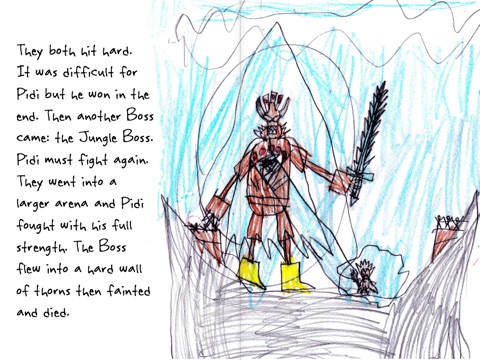 They both hit hard.
It was difficult for
Pidi but he won in the
end. Then another Boss
came: the Jungle Boss.
Pidi must fight again.
They went into a
larger arena and Pidi
fought with his full
strength. The Boss
flew into a hard wall
of thorns then fainted
and died.